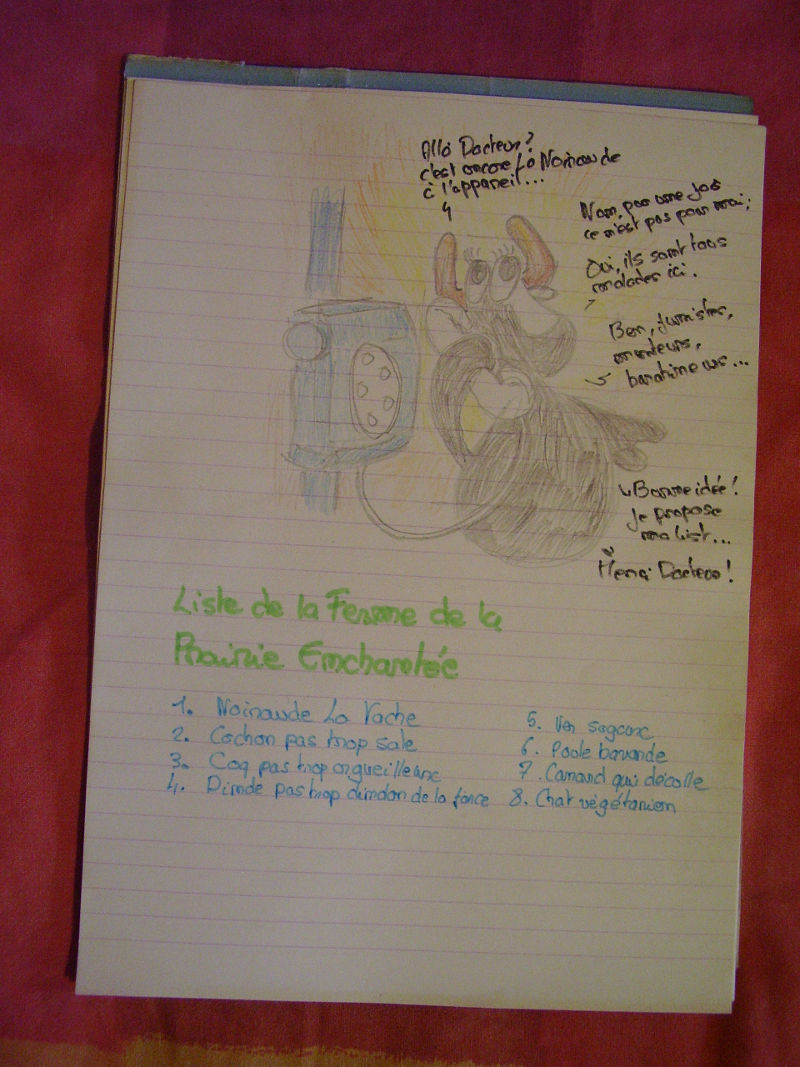 Allô Docteur?
c'est encore La Noiraude
à l'appareil...
Non, pour une fois
ce n'est pas pour moi;
Oui, ils sont tous
malades ici.
Ben, fumistes,
menteurs,
baratineurs...
Bonne idée!
Je propose
ma list...
Merci Docteur!
Liste de la Ferme de la
Prairie Enchantée
1. Noiraude La Vache
2. Cochon pas trop sale
3. Coq pas trop orgueilleux
4. Dinde pas trop dindon de la farce
5. Ver
6. Poule bavarde
7. Canard qui décolle
8. Chat végétarien